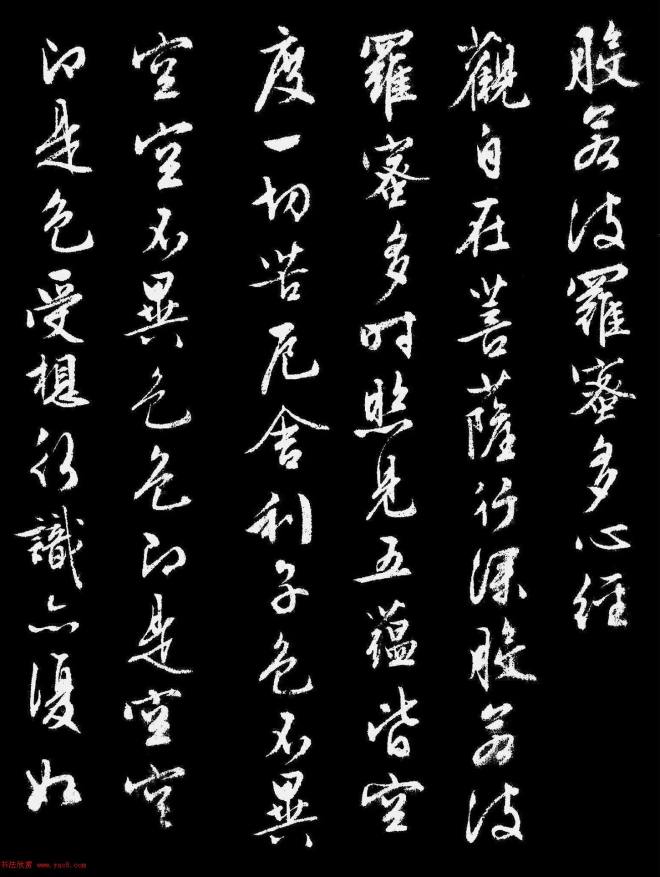 般若波羅蜜多心經
觀自在菩薩行深般若波
羅蜜多時照見五蘊皆空
度一切苦厄舍利子色不異
空空不異色色即是空空
即是色受想行識亦復如
书法欣赏 www.yac8.com